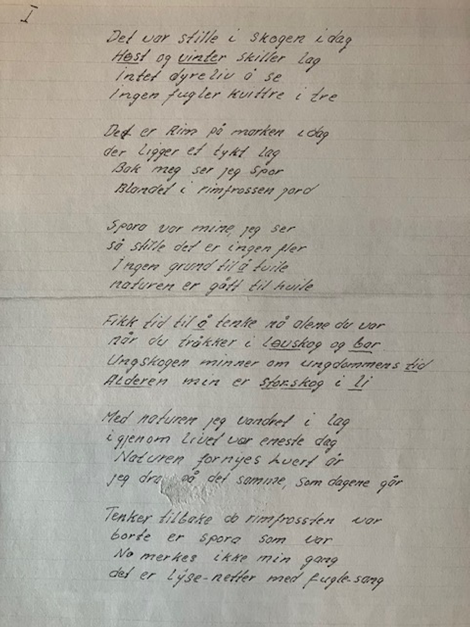 I
Det var stille i skogen idag
Høst og vinter skiller lag
Intet dyreliv å se
Ingen fugler kvittre i tre
Det er Rim på marken idag
der ligger et tykt lag
Bak meg ser jeg spor
Blandet i rimfrossen jord
Spora var mine, jeg ser
så stille det er ingen fler
Ingen grund til å tvile
naturen er gått til hvile
Fikk tid til å tenke nå alene du var
når du tråkker i løvskog og bar
Ungskogen minner om ungdommens tid
Alderen min er storskog i li
Med naturen jeg vandret i lag
igjennom livet var eneste dag
Naturen fornyes hvert år
jeg dra på det samme, som dagene går
Tenker tilbake da rimfrossten var
borte er spora som var
Nå merkes ikke min gang
det er lyse-netter med fugle-sang